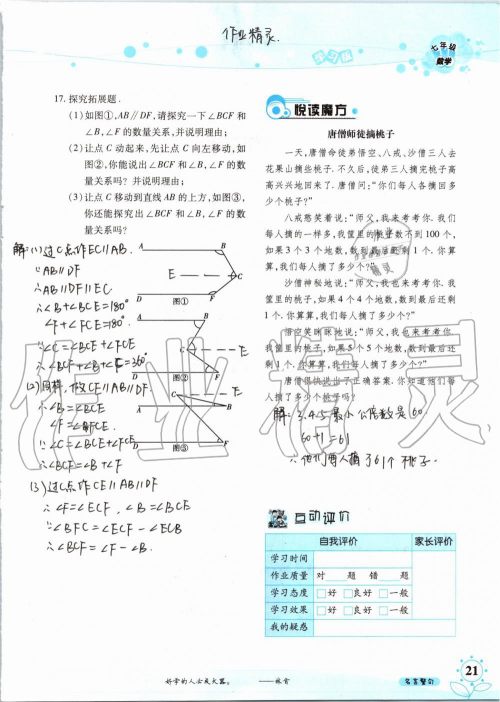 作业精灵.
学习版
七年级
数学
17. 探究拓展题.
(1)如图①,AB∥DF,请探究一下∠BCF 和
∠B,∠F 的数量关系,并说明理由;
(2)让点 C 动起来,先让点 C 向左移动,如
图②,你能说出∠BCF 和∠B,∠F 的数
量关系吗?并说明理由;
(3)让点 C 移动到直线 AB 的上方,如图③,
你还能探究出∠BCF 和∠B,∠F 的数
量关系吗?
解:(1)过C点作EC∥AB.
∵AB∥DF
∴AB∥DF∥EC
∴∠B+∠BCE=180°
∠F+∠FCE=180°.
∴∠C=∠BCE+∠FCE
∴∠BCF+∠B+∠F=360°
(2)同样,做CE∥AB∥DF.
∴∠B=∠BCE
∠F=∠FCE.
∴∠C=∠BCE+∠FCE.
∴∠BCF=∠B+∠F
(3)过C点作CE∥AB∥DF
∴∠F=∠ECF,∠B=∠BCE.
∴∠BFC=∠ECF-∠ECB
∴∠BCF=∠F-∠B.
A B
E C
D F
图①
A B
C E
D F
图②
C E
A B
D F
图③
悦读魔方
唐僧师徒摘桃子
一天,唐僧命徒弟悟空、八戒、沙僧三人去
花果山摘些桃子.不久后,徒弟三人摘完桃子高
高兴兴地回来了.唐僧问:“你们每人各摘回多
少个桃子?”
八戒憨笑着说:“师父,我来考考你.我们
每人摘的一样多,我筐里的桃子数不到 100 个,
如果 3 个 3 个地数,数到最后还剩 1 个.你算
算,我们每人摘了多少个?”
沙僧神秘地说:“师父,我也来考考你.我
筐里的桃子,如果 4 个 4 个地数,数到最后还剩
1 个.你算算,我们每人摘了多少个?”
悟空笑眯眯地说:“师父,我也来考考你.
我筐里的桃子,如果 5 个 5 个地数,数到最后还
剩 1 个.你算算,我们每人摘了多少个?”
唐僧很快说出了正确答案.你知道他们每
人摘了多少个桃子吗?
解:3.4.5最小公倍数是60
60+1=61
∴他们每人摘了61个桃子.
作业精灵
互动评价
自我评价 家长评价
学习时间
作业质量 对 题 错 题
学习态度 □好 □良好 □一般
学习效果 □好 □良好 □一般
我的疑惑
好学的人必成大器。 ——林肯
名言警句
21